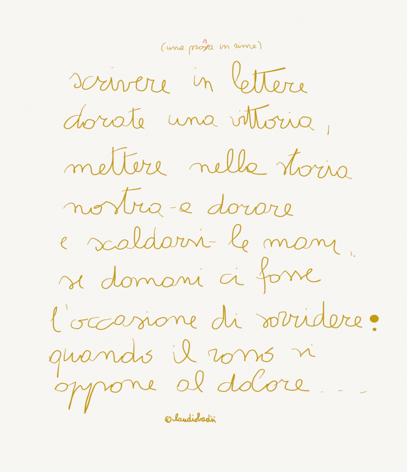 (una prosa in rime)
scrivere in lettere
dorate una vittoria,
mettere nella storia
nostra-a dorare
e scaldarsi- le mani,
se domani ci fosse
l'occasione di sorridere:
quando il rosso si
oppone al dolore...
©claudiobadii